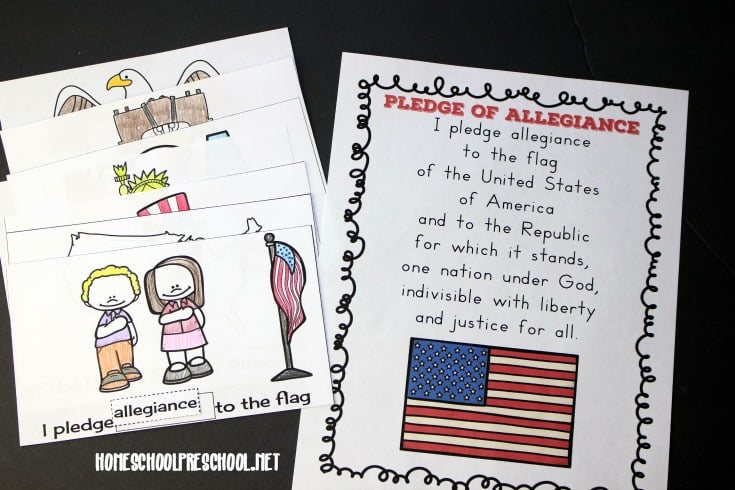 PLEDGE OF ALLEGIANCE
I pledge allegiance
to the flag
of the United States
of America
and to the Republic
for which it stands,
one nation under God,
indivisible with liberty
and justice for all.
I pledge allegiance to the flag
HOMESCHOOLPRESCHOOL.NET